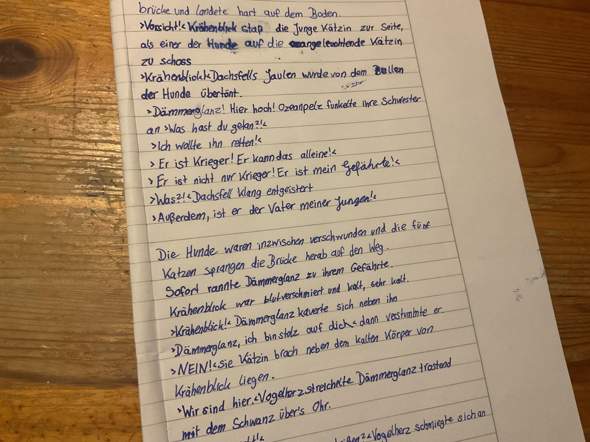 brücke und landete hart auf dem Boden.
>Vorsicht!< Krähenblick stap die junge Kätzin zur Seite,
als einer der Hunde auf die orangeleuchtende Kätzin
zu schoss
>Krähenblick!< Dachsfells Jaulen wurde von dem Bellen
der Hunde übertönt.
>Dämmerglanz! Hier hoch! Ozeanpelz funkelte ihre Schwester
an >Was hast du getan?!<
>Ich wollte ihn retten!<
>Er ist Krieger! Er kann das alleine!<
>Er ist nicht nur Krieger! Er ist mein Gefährte!<
>Was?!< Dachsfell klang entgeistert
>Außerdem, ist er der Vater meiner Jungen!<
Die Hunde waren inzwischen verschwunden und die fünf
Katzen sprangen die Brücke herab auf den Weg.
Sofort rannte Dämmerglanz zu ihrem Gefährte.
Krähenblick war blutverschmiert und kalt, sehr kalt.
>Krähenblick!< Dämmerglanz kauerte sich neben ihn
>Dämmerglanz, ich bin stolz auf dich< dann verstummte er
>NEIN!< Sie Kätzin brach neben dem kalten Körper von
Krähenblick liegen.
>Wir sind hier.< Vogelherz streichelte Dämmerglanz tröstend
mit dem Schwanz über's Ohr.
Vogelherz schmiegte sich an